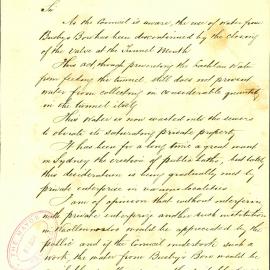 Sir
As the Council is aware, the use of water from
Busby's Bore has been discontinued by the closing
of the valve at the Tunnel Mouth
This act, though preventing the Lachlan Water
from feeding the tunnel, still does not prevent
water from collecting in considerable quantity
in the tunnel itself
This water is now wasted into the sewers
to obviate its saturating private property
It has been for a long time a great want
in Sydney the erection of public baths, but lately
this desideratum is being gradually met by
private enterprise in various localities
I am of opinion that without interfering
with private enterprize another such institution
in Woolloomooloo would be appreciated by the
public and if the Council undertook such a
work, the water from Busby's Bore would be